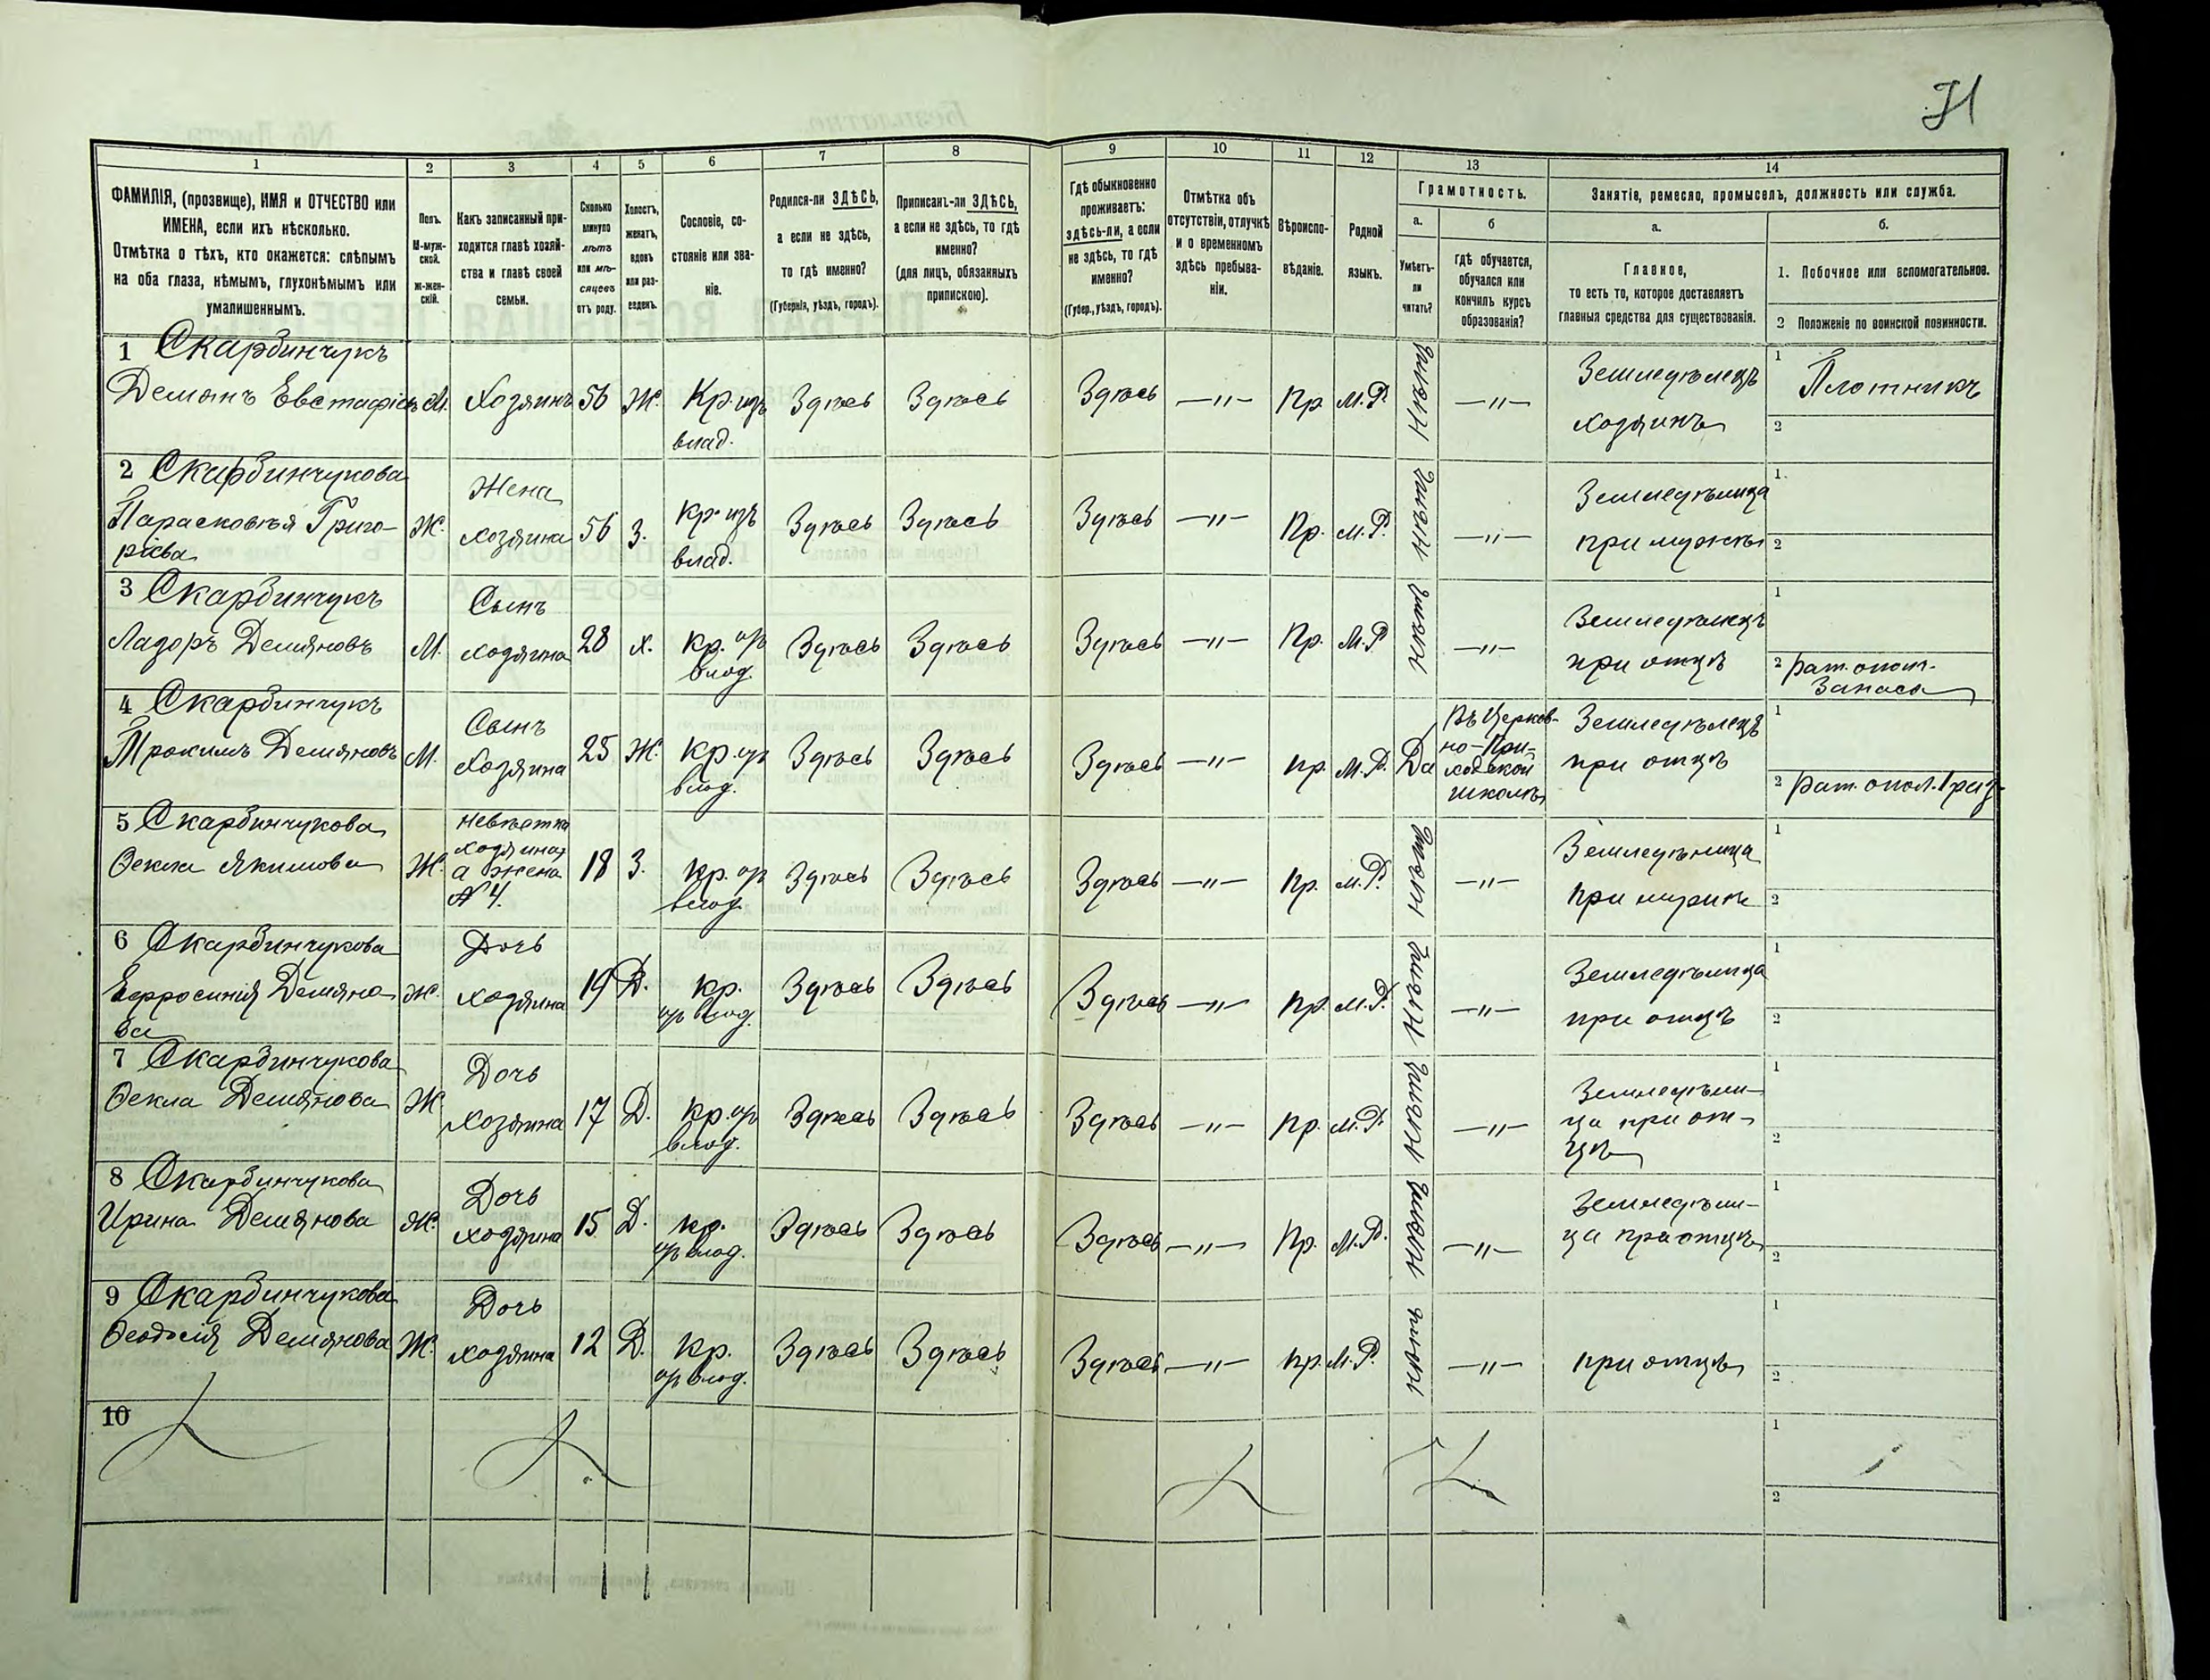 1 2 3 4 5 6 7 8 9 10 11 12 13 14
ФАМИЛІЯ, (прозвище), ИМЯ и ОТЧЕСТВО или
ИМЕНА, если ихъ нѣсколько.
Отмѣтка о тѣхъ, кто окажется: слѣпымъ
на оба глаза, нѣмымъ, глухонѣмымъ или
умалишеннымъ.
Полъ.
М-муж-
ской.
ж-жен-
скій.
Какъ записанный при-
ходится главѣ хозяй-
ства и главѣ своей
семьи.
Сколько
минуло
лѣтъ
или мѣ-
сяцевъ
отъ роду.
Холостъ,
женатъ,
вдовъ
или раз-
веденъ.
Сословіе, со-
стояніе или зва-
ніе.
Родился-ли ЗДѢСЬ,
а если не здѣсь,
то гдѣ именно?
(Губернія, уѣздъ, городъ).
Приписанъ-ли ЗДѢСЬ,
а если не здѣсь, то гдѣ
именно?
(для лицъ, обязанныхъ
припискою).
Гдѣ обыкновенно
проживаетъ:
здѣсь-ли, а если
не здѣсь, то гдѣ
именно?
(Губер., уѣздъ, городъ).
Отмѣтка объ
отсутствіи, отлучкѣ
и о временномъ
здѣсь пребыва-
ніи.
Вѣроиспо-
вѣданіе.
Родной
языкъ.
Грамотность.
а.
Умѣетъ-
ли
читать?
б
Гдѣ обучается,
обучался или
кончилъ курсъ
образованія?
Занятіе, ремесло, промыселъ, должность или служба.
а.
Главное,
то есть то, которое доставляетъ
главныя средства для существованія.
б.
1. Побочное или вспомогательное.
2 Положеніе по воинской повинности.
1 Скарбинчукъ
Демянъ Евстафіевъ М. Хозяинъ 56 Ж. Кр. изъ
влад. Здѣсь Здѣсь Здѣсь —"— Пр. М.Р. Нѣтъ —"— Земледѣлецъ
хозяинъ 1 Плотникъ
2
2 Скарбинчукова
Парасковѣя Григо-
ріева Ж. Жена
хозяина 56 З. Кр. изъ
влад. Здѣсь Здѣсь Здѣсь —"— Пр. М.Р. —"— Земледѣлица
при мужѣ 1
2
3 Скарбинчукъ
Лазоръ Демяновъ М. Сынъ
хозяина 28 х. Кр. изъ
влад. Здѣсь Здѣсь Здѣсь —"— Пр. М.Р. —"— Земледѣлецъ
при отцѣ 1
2 Рат. опол.
Запаса
4 Скарбинчукъ
Трохимъ Демяновъ М. Сынъ
Хозяина 25 Ж. Кр. изъ
влад. Здѣсь Здѣсь Здѣсь —"— Пр. М.Р. Да Въ Церков-
но-При-
ходской
школѣ Земледѣлецъ
при отцѣ 1
2 Рат. опол. 1 раз.
5 Скарбинчукова
Фекла Якимова Ж. Невѣстка
хозяина,
а жена
№ 4. 18 З. Кр. изъ
влад. Здѣсь Здѣсь Здѣсь —"— Пр. М.Р. —"— Земледѣлица
при мужѣ 1
2
6 Скарбинчукова
Ефросинія Демяно-
ва Ж. Дочь
хозяина 19 Д. Кр.
изъ влад. Здѣсь Здѣсь Здѣсь —"— Пр. М.Р. —"— Земледѣлица
при отцѣ 1
2
7 Скарбинчукова
Фекла Демянова Ж. Дочь
Хозяина 17 Д. Кр. изъ
влад. Здѣсь Здѣсь Здѣсь —"— Пр. М.Р. —"— Земледѣли-
ца при от-
цѣ 1
2
8 Скарбинчукова
Ирина Демянова Ж. Дочь
хозяина 15 Д. Кр.
изъ влад. Здѣсь Здѣсь Здѣсь —"— Пр. М.Р. —"— Земледѣли-
ца при отцѣ 1
2
9 Скарбинчукова
Феодосія Демянова Ж. Дочь
хозяина 12 Д. Кр.
изъ влад. Здѣсь Здѣсь Здѣсь —"— Пр. М.Р. —"— при отцѣ 1
2
10 1
2